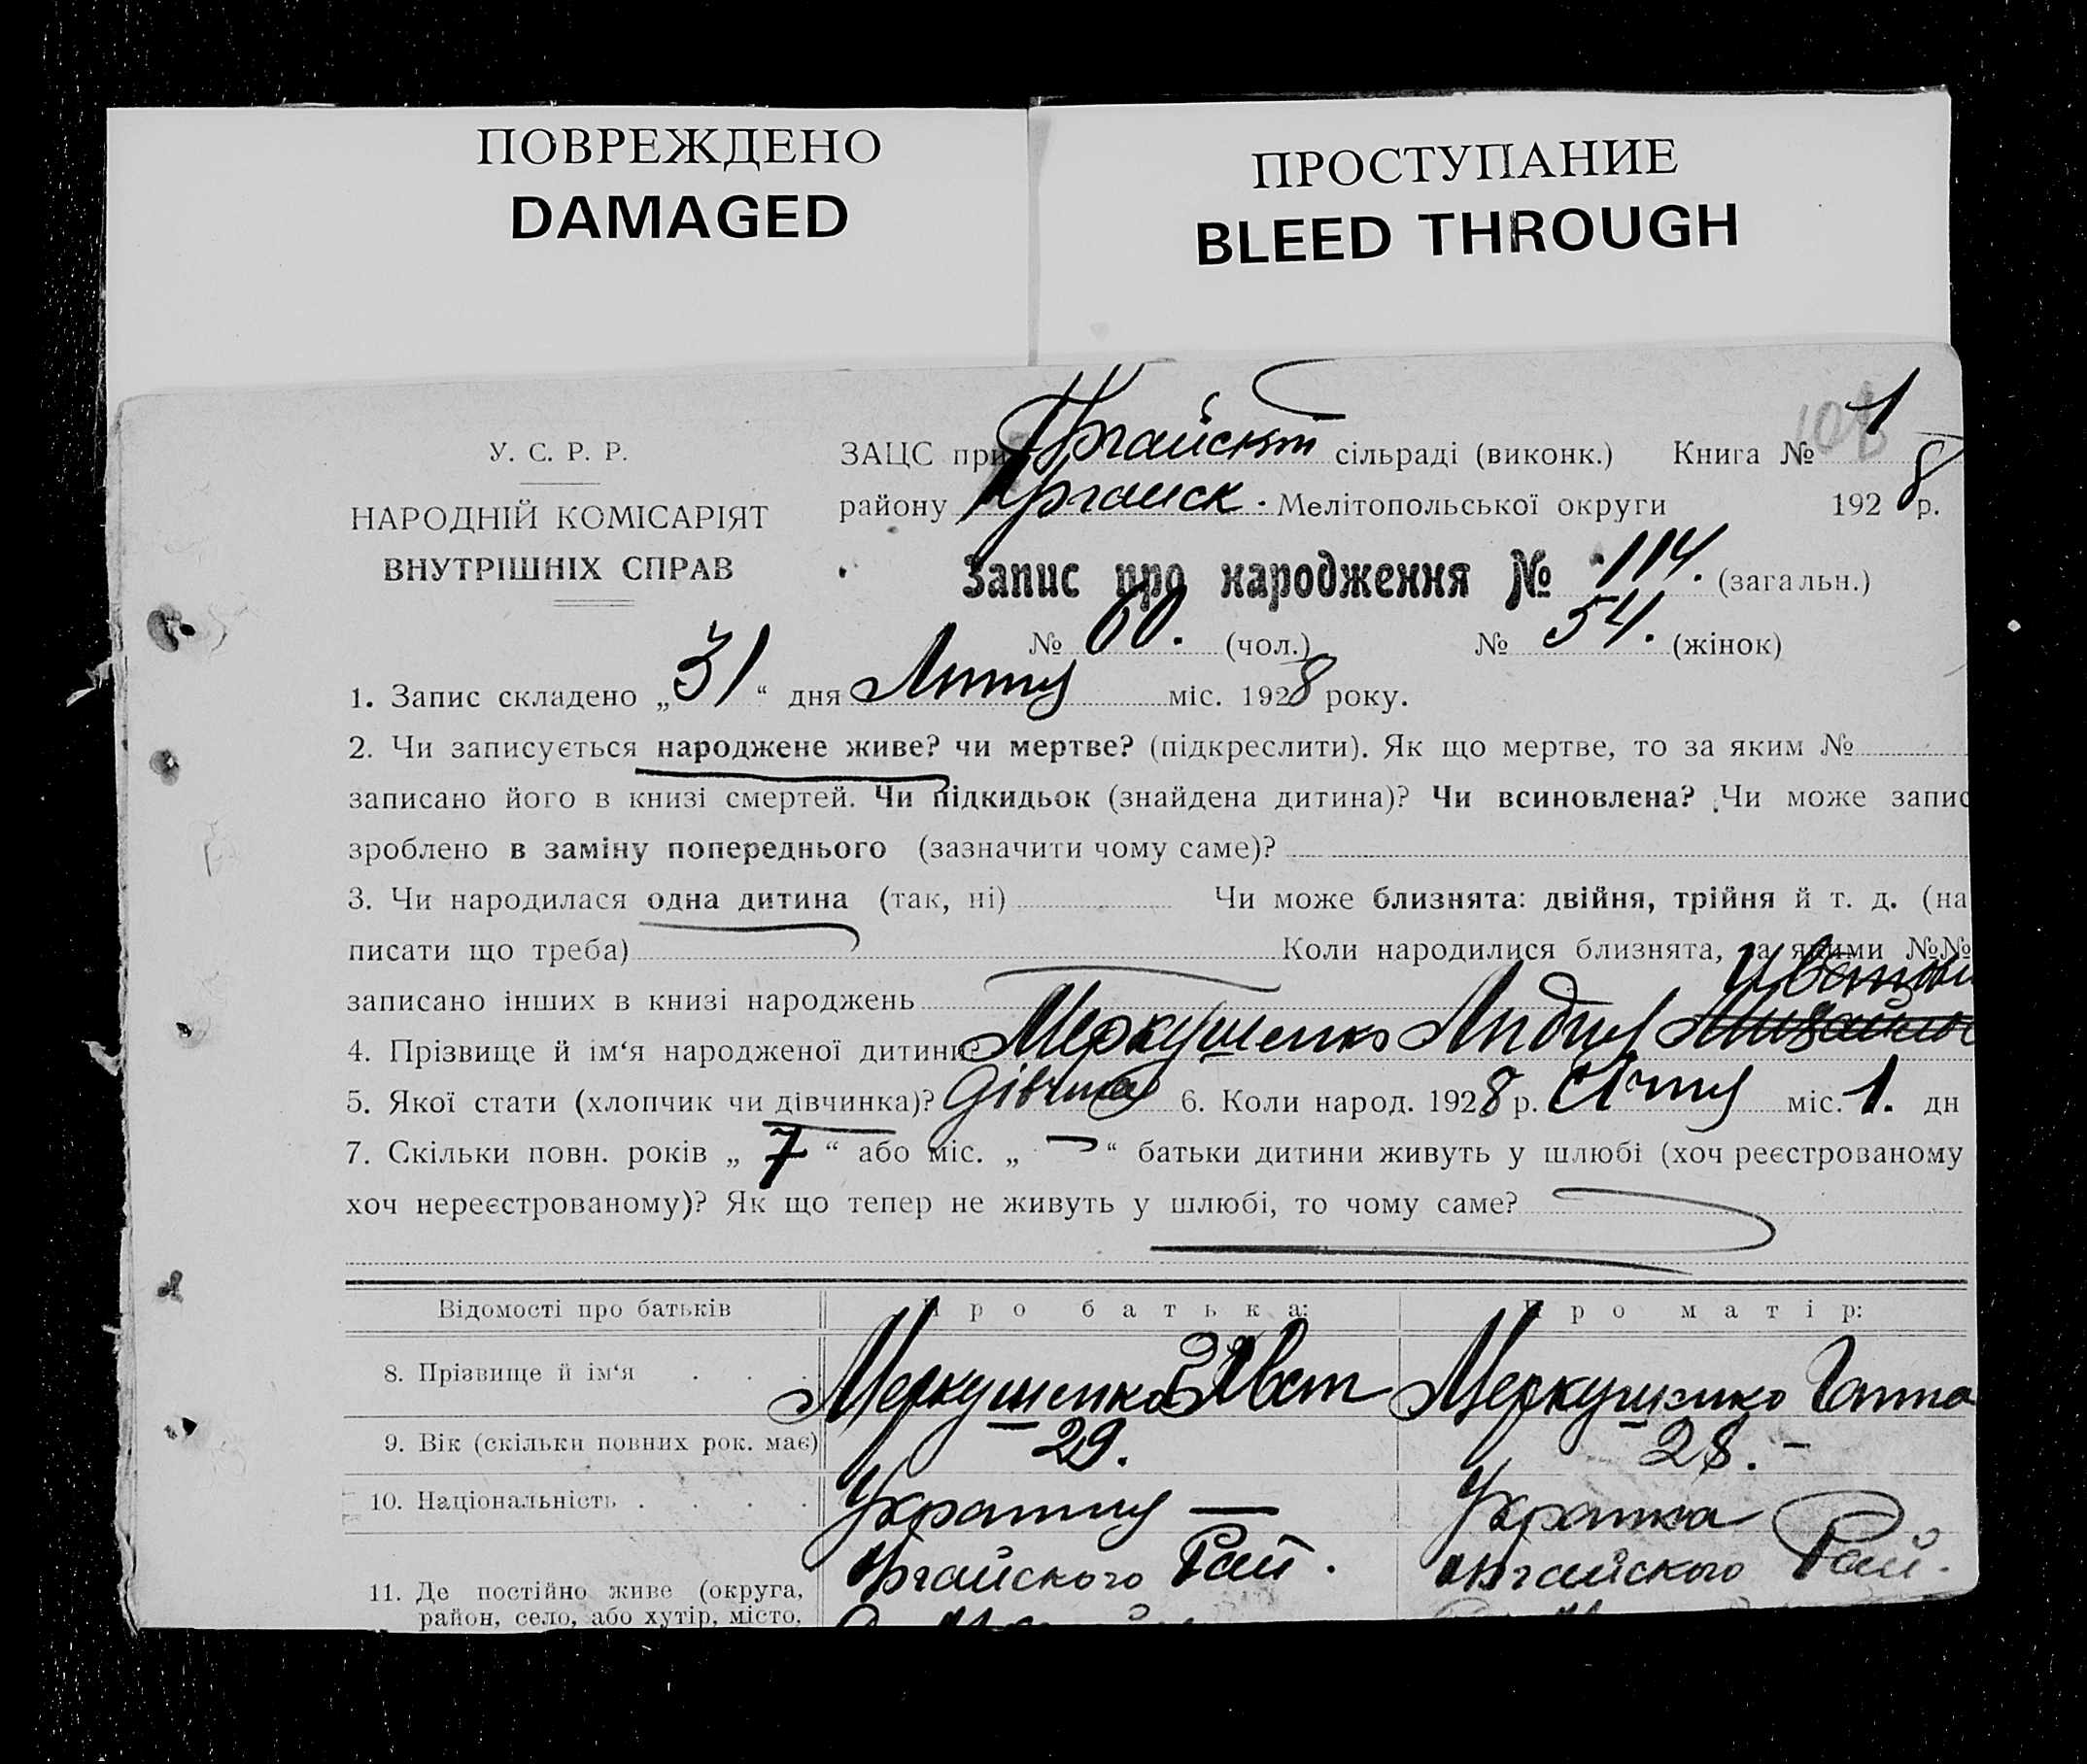 ПОВРЕЖДЕНО
DAMAGED
ПРОСТУПАНИЕ
BLEED THROUGH
У. С. Р. Р.
НАРОДНІЙ КОМІСАРІЯТ
ВНУТРІШНІХ СПРАВ
ЗАЦС при сільраді (виконк.) Книга № 1
району Мелітопольської округи 1928 р.
Запис про народження № 114. (загальн.)
№ 60. (чол.) № 54. (жінок)
1. Запис складено „31“ дня міс. 1928 року.
2. Чи записується народжене живе? чи мертве? (підкреслити). Як що мертве, то за яким №
записано його в книзі смертей. Чи підкидьок (знайдена дитина)? Чи всиновлена? Чи може запис
зроблено в заміну попереднього (зазначити чому саме)?
3. Чи народилася одна дитина (так, ні) Чи може близнята: двійня, трійня й т. д. (на
писати що треба) Коли народилися близнята, за якими №№
записано інших в книзі народжень
4. Прізвище й ім‘я народженої дитини? Меркушенко
5. Якої стати (хлопчик чи дівчинка)? 6. Коли народ. 1928 р. міс. 1. дн
7. Скільки повн. років „7“ або міс. „—“ батьки дитини живуть у шлюбі (хоч реєстрованому
хоч нереєстрованому)? Як що тепер не живуть у шлюбі, то чому саме?
Відомості про батьків Про батька: Про матір:
8. Прізвище й ім‘я . . . Меркушенко Меркушенко Ганна
9. Вік (скільки повних рок. має) 29. 28. –
10. Національність . . . . —
11. Де постійно живе (округа, Рай. Рай.
район, село, або хутір, місто,